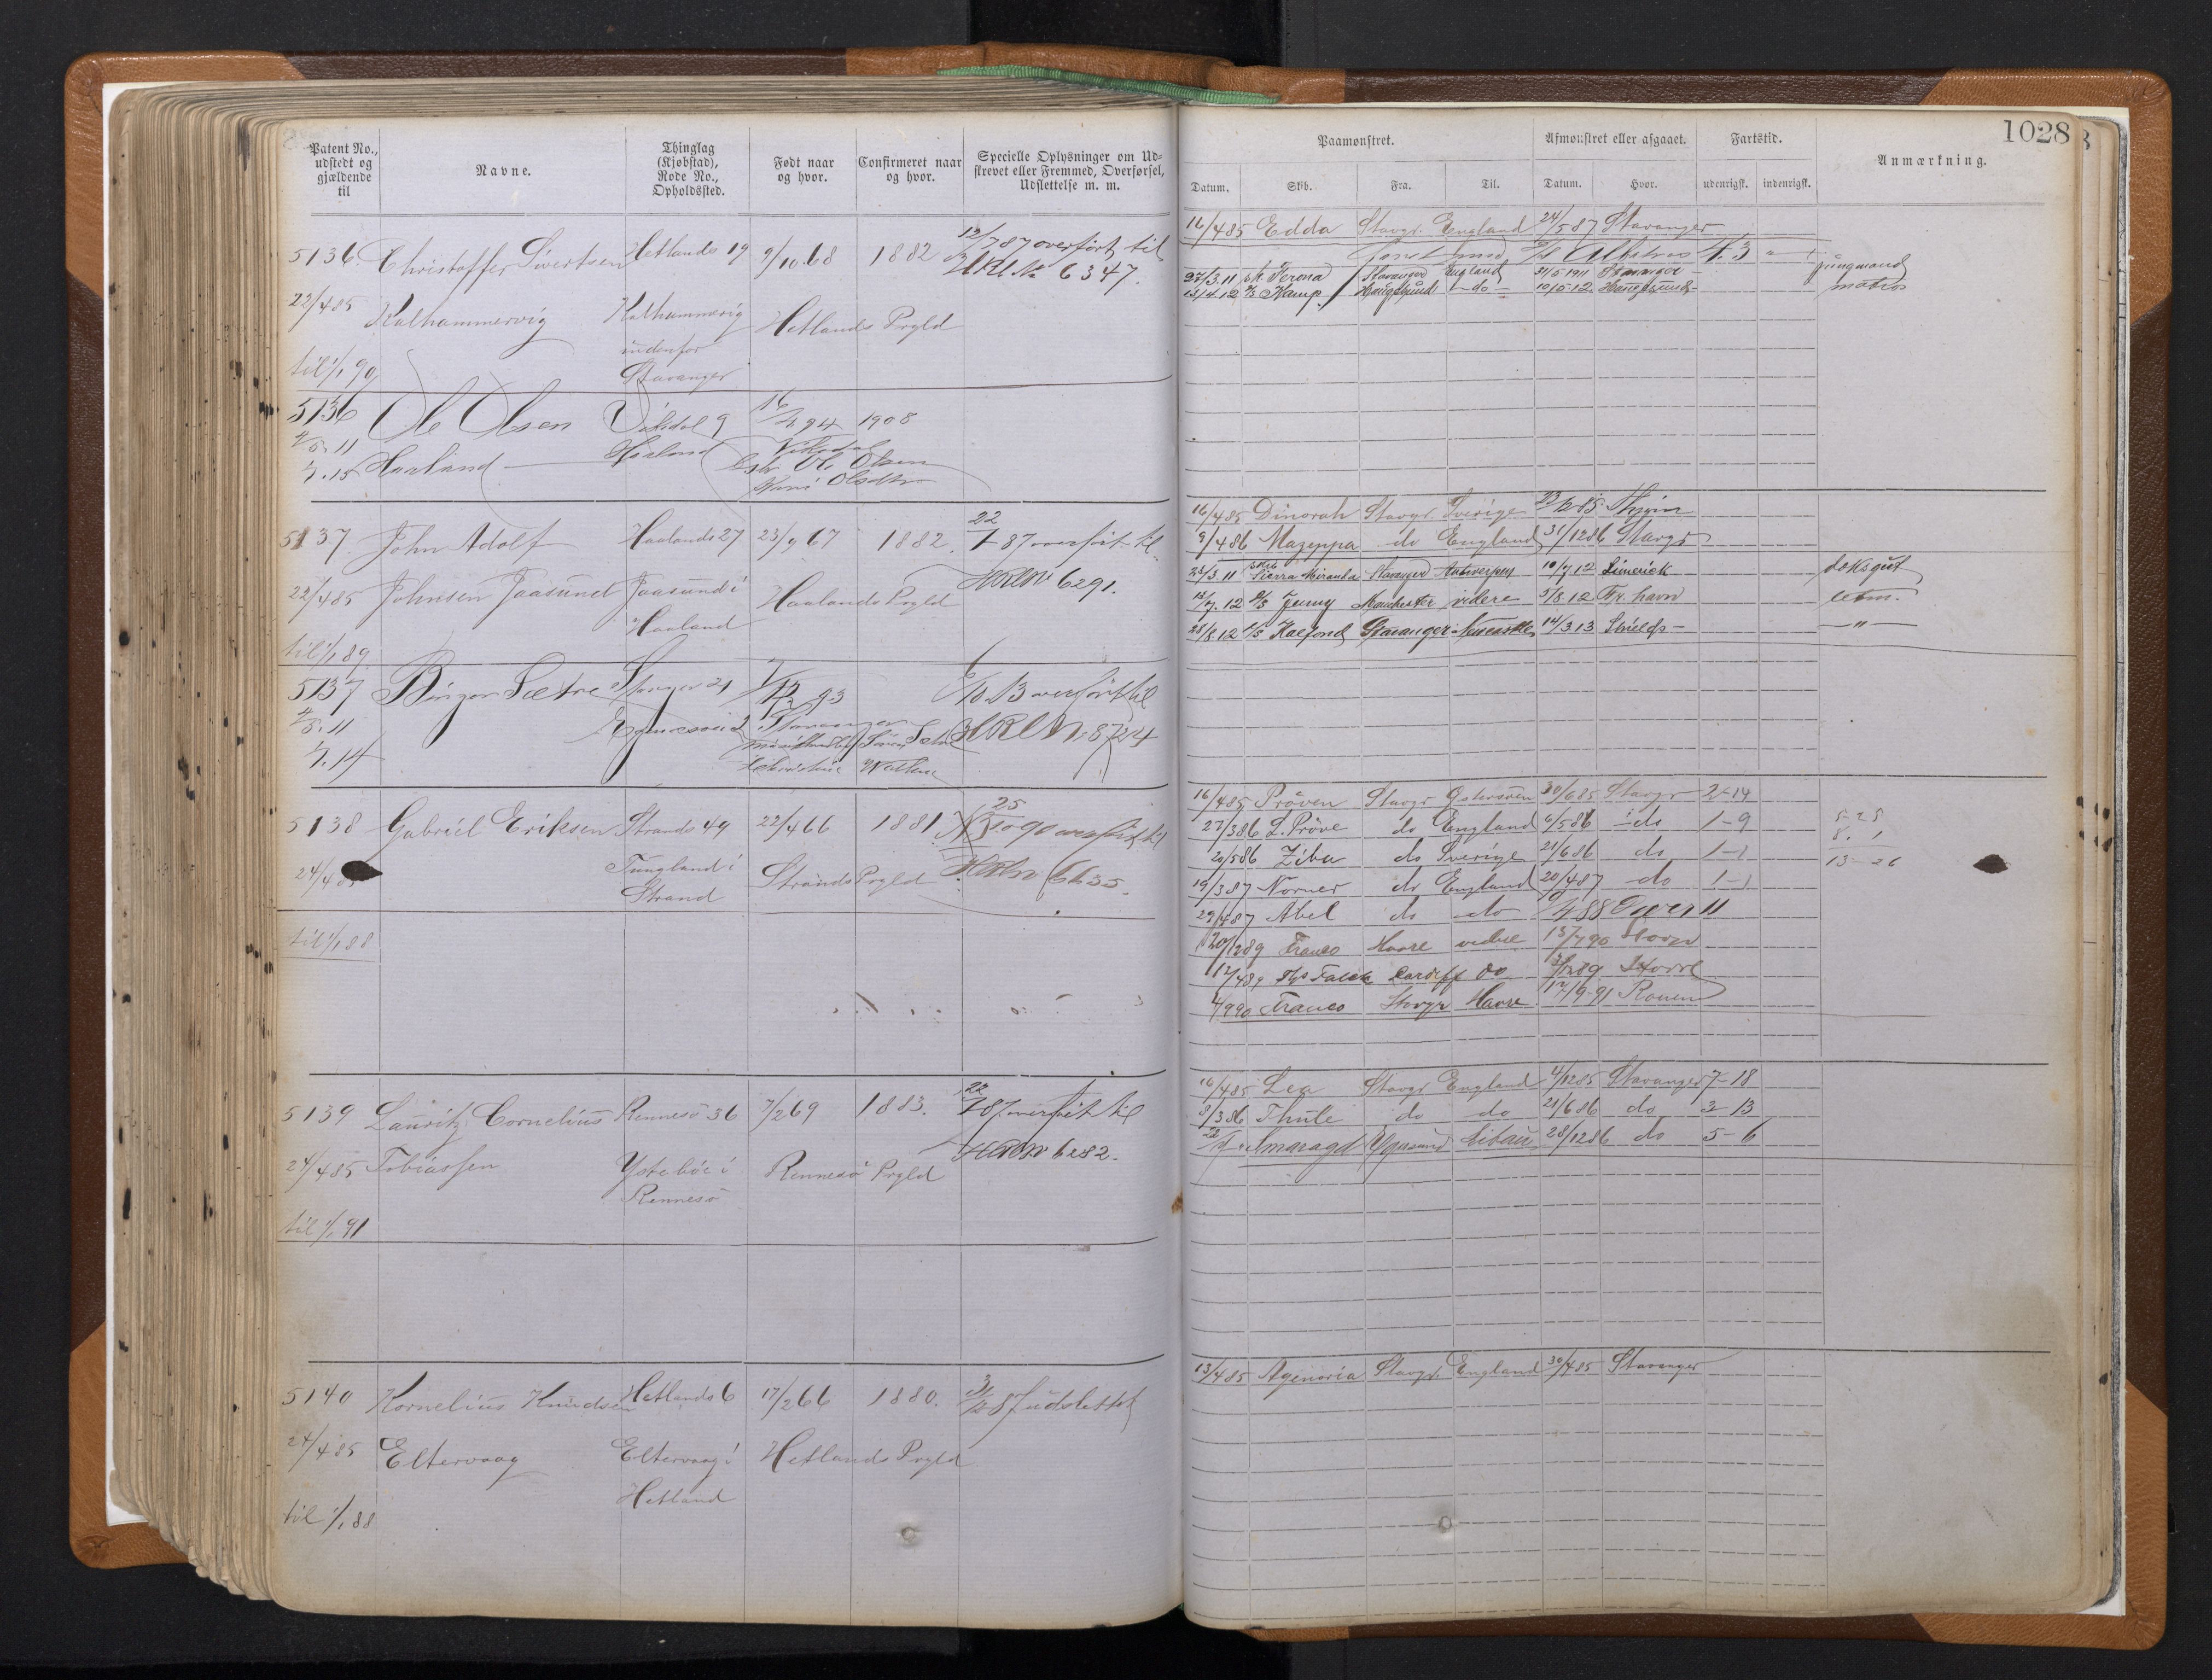 1028
Patent No., udstedt og gjældende til
Navne.
Thinglag (Kjøbstad), Rode No., Opholdssted.
Født naar og hvor.
Confirmeret naar og hvor.
Specielle Oplysninger om Udskrevet eller Fremmed, Overførsel, Udslettelse m. m.
Paamønstret.
Afmønstret eller afgaaet.
Fartstid.
Anmærkning.
Datum. Skib. Fra. Til. Datum. Hvor. udenrigsk. indenrigsk.
5136 Christoffer Sivertsen Hetlands 19 9/10 68 1882 12/7 87 overført til
HRL No 6347.
22/4 85 Kalhammervig Kalhammervig Hetlands Prgld
indenfor
til 1/1 90 Stavanger
5136 Ole Olsen Vikedal 9 1908
Haaland
Ole Olsen
5137 John Adolf Haalands 27 23/9 67 1882. 22/7 87 overført til
22/4 85 Johnsen Jaasund Jaasund i Haalands Prgld 6291.
Haaland
til 1/1 89
5137 Birger Sætre Stavger 21 93 overført til
8724
5138 Gabriel Eriksen Strands 49 22/4 66 1881 25/10 90 overført til
24/4 85 Tungland i Strands Prgld 6635.
Strand
til 1/1 88
5139 Lauritz Cornelius Rennesö 36 7/2 69 1883. 22/7 87 overført til
6282.
24/4 85 Tobiassen Ystebøe i Rennesö Prgld
Rennesö
til 1/1 91
5140 Kornelius Knudsen Hetlands 6 17/2 66 1880. 87 udslettet
24/4 85 Eltervaag Eltervaag i Hetlands Prgld
Hetland
til 1/1 88
16/4 85 Edda Stavgr. England 24/5 87 Stavanger
Albatros 4. 3
27/3.11 Verona Stavanger England 31/5 1911 Stavanger jungmand
13/4.12 Kamp Haugesund do 10/5.12. Haugesund matros
16/4 85 Dinorah Stavgr. Sverige
9/4 86 Mazeppa do England 31/12 86 Stavgr
23/3.11 Sierra Miranda Stavanger Antwerpen 10/7 12 Limerick dæksgut
15/7.12 Jenny Manchester videre 3/8.12 Fr. havn
28/8.12 Stavanger Newcastle 14/3 13 Shields
16/4 85 Pröven Stavgr Østersöen 30/6 85 Stavgr 2-14
27/3 86 L. Pröve do England 6/5 86 do 1-9
20/5 86 Ziba do Sverige 21/6 86 do 1-1
13-26
19/3 87 Norner do England 20/4 87 do 1-1
29/4 87 Abel do do
Franco Havre videre
12/4 89 Ths Falck Cardiff do
4/9 90 Franco Stavgr Havre 17/9-91 Rouen
16/4 85 Lea Stavgr England 4/12 85 Stavanger 7-18
8/3 86 Thule do do 21/6 86 do 3-13
Smaragd Egersund Libau 28/12 86 do 5-6
13/4 85 Agenoria Stavgr. England 30/4 85 Stavanger